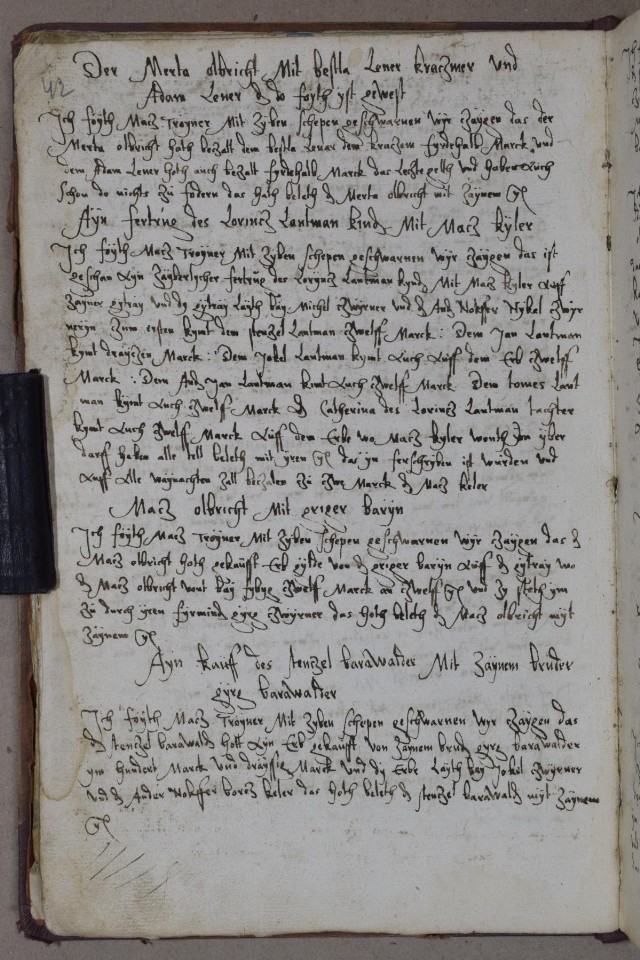 42
Der Merta olbricht Mit bestla Lener kraczmer und
Adam Lener d do foyth yst gewest
Ich foyth Macz Troyner Mit zyben schepen geschwarnen wyr zaygen das der
Merta olbricht hoth beczalt dem bestla Lenar dem kraczem fyrdehalb Marck und
dem Adam Lener hoth auch beczalt fyrdehalb Marck das Leczte gelth und haben Auch
schon do nichts zu fodern das hoth beleth d Merta olbricht mit zaynem
Ayn fertrug des Lorincz Lantman kind Mit Macz kyler
Ich foyth Macz Troyner Mit zyben schepen geschwarnen wyr zaygen das ist
geschan Ayn zayberlycher fertrug des Loryncz Lantman kynd Mit Macz kyler Auff
zayner gytray und dy gytray Layth bay Michel zwyrner und d And Nokffer Nykel zwyr
neryn zum ersten kymt dem stenzel Lantman zwelff Marck : Dem Jan Lantman
kymt drayczen Marck : Dem Jokel Lantman kymt Auch Auff dem Erb zwelff
Marck : Dem And Jan Lantman kimt Auch zwelff Marck Dem tomes Lant
man kymt Auch zwelf Marck d Catherina des Lorincz Lantman tachter
kymt Auch zwelf Marck Auff dem Erbe wo Macz kyler wonth yber
darff haben alle tell beleth mit yren das yn ferschryben ist wurden und
Auff Alle waynachten zall beczalen zu zwe Marck d Macz keler
Macz olbricht Mit griger baryn
Ich foyth Macz Troyner Mit zyben schepen geschwarnen wyr zaygen das d
Macz olbricht hoth gekaufft Erb gylde von d griger baryn Auff d gytray wo
d Macz olbricht wont bay zwelf Marck an zwelf und zy stoth ym
zu durch yren fyrmind gyrg zwyrner das hoth beleth d Macz olbricht myt
zaynem
Ayn kauff des stenzel barawalder Mit zaynem bruder
gyrg barawalder
Ich foyth Macz Troyner Mit zyben schepen geschwarnen wyr zaygen das
d stenzel barawald hott Ayn Erb gekaufft von zaynem brud gyrg barawalder
ym hundert Marck und draysig Marck und dy Erbe Layth bay Jokel zwyrner
und d Ander Nokffer borcz keler das hoth beleth d stenzel barawald myt zaynem